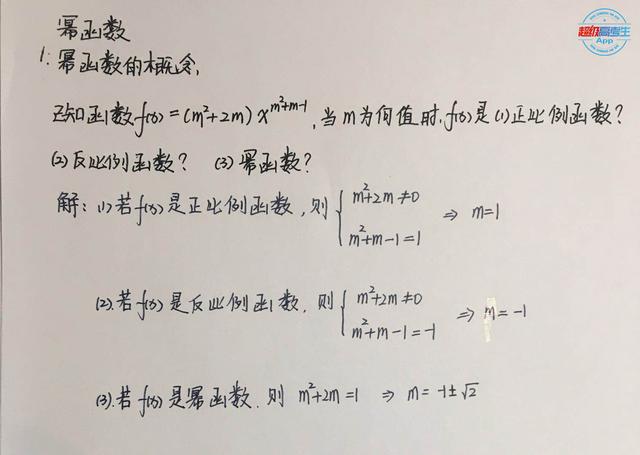 超级高考生
App
幂函数
1:幂函数的概念,
已知函数f(x)=(m²+2m)x^{m²+m-1},当m为何值时,f(x)是(1)正比例函数?
(2)反比例函数? (3)幂函数?
解:(1)若f(x)是正比例函数,则{m²+2m≠0
m²+m-1=1 ⇒ m=1
(2).若f(x)是反比例函数,则{m²+2m≠0
m²+m-1=-1 ⇒ m=-1
(3).若f(x)是幂函数.则 m²+2m=1 ⇒ m=-1±√2